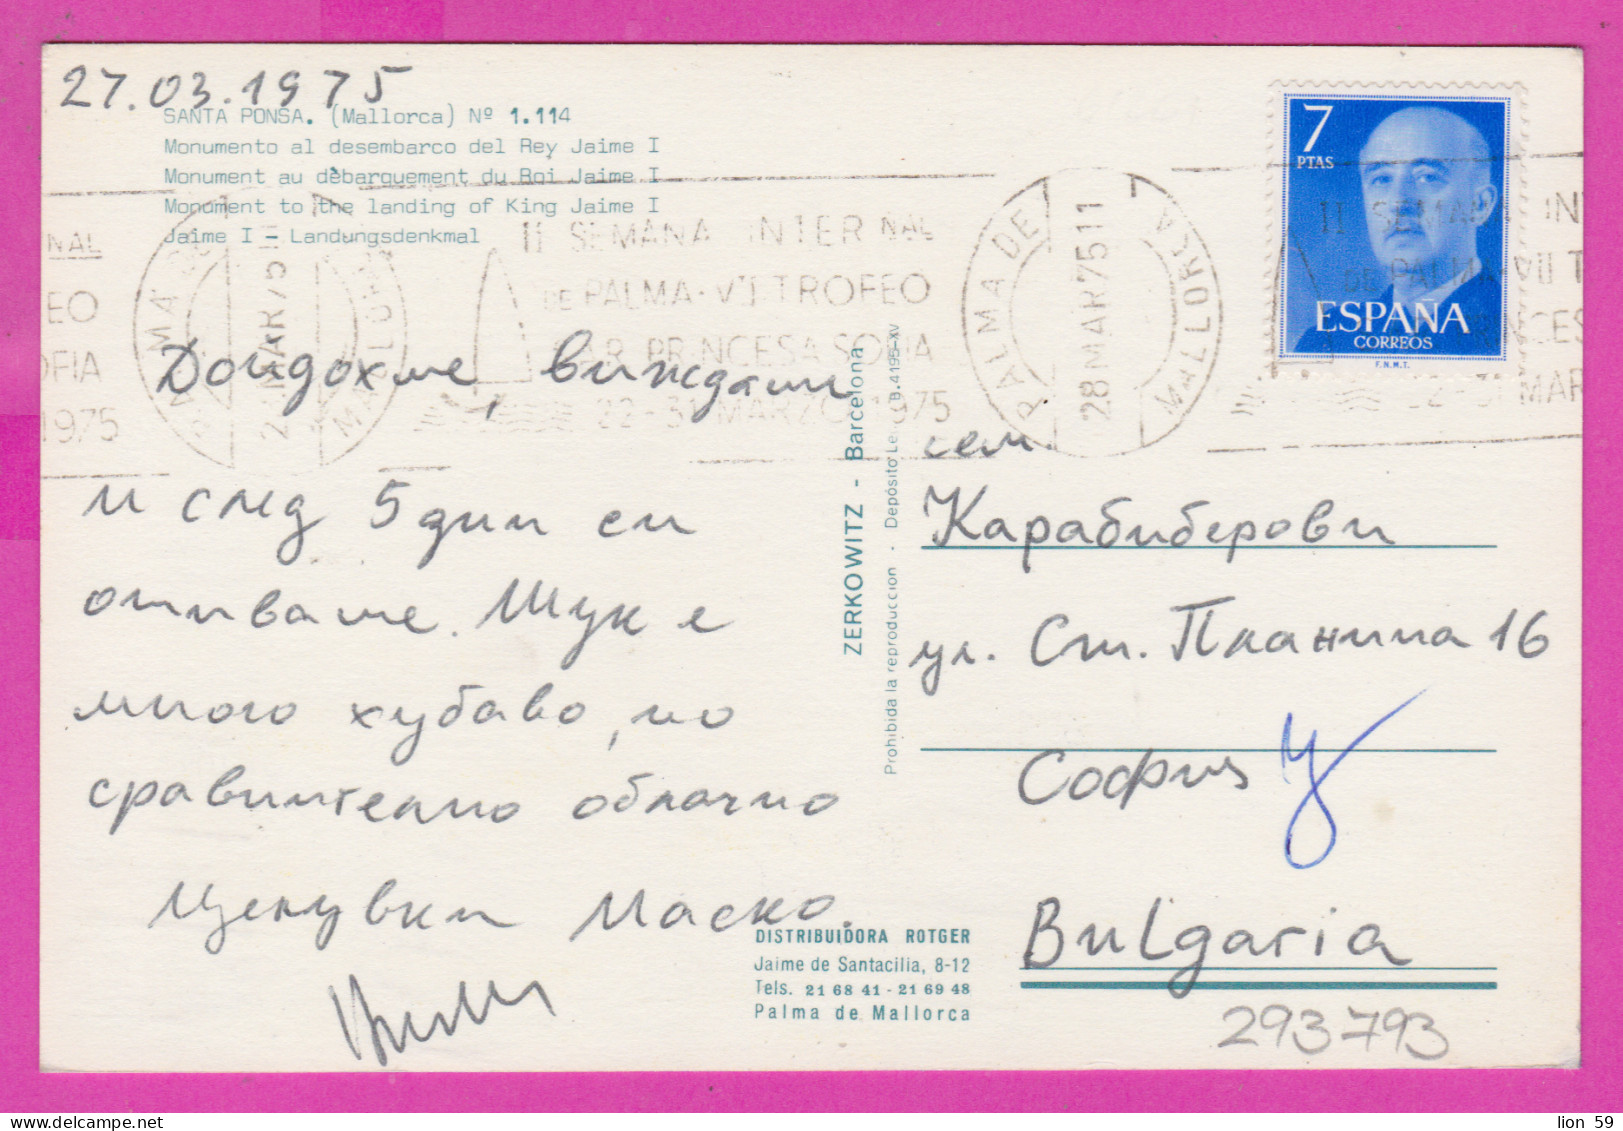 27.03.1975
SANTA PONSA. (Mallorca) Nº 1.114
Monumento al desembarco del Rey Jaime I
Monument au débarquement du Roi Jaime I
Monument to the landing of King Jaime I
Jaime I - Landungsdenkmal
II SEMANA INTERNAL
DE PALMA-VII TROFEO
S.A.R. PRINCESA SOFIA
22-31 MARZO 1975
PALMA DE MALLORCA
28 MAR 75 11
7
PTAS
ESPAÑA
CORREOS
F.N.M.T.
Дойдохме, виждаш
и след 5 дни си
отиваме. Тук е
много хубаво, но
сравнително облачно
Целувки Маско.
ZERKOWITZ - Barcelona
Prohibida la reproduccion - Depósito Le. B.4195-XV
сем.
Карабиберови
ул. Ст. Планина 16
София
Bulgaria
DISTRIBUIDORA ROTGER
Jaime de Santacilia, 8-12
Tels. 21 68 41 - 21 69 48
Palma de Mallorca
293793
lion 59